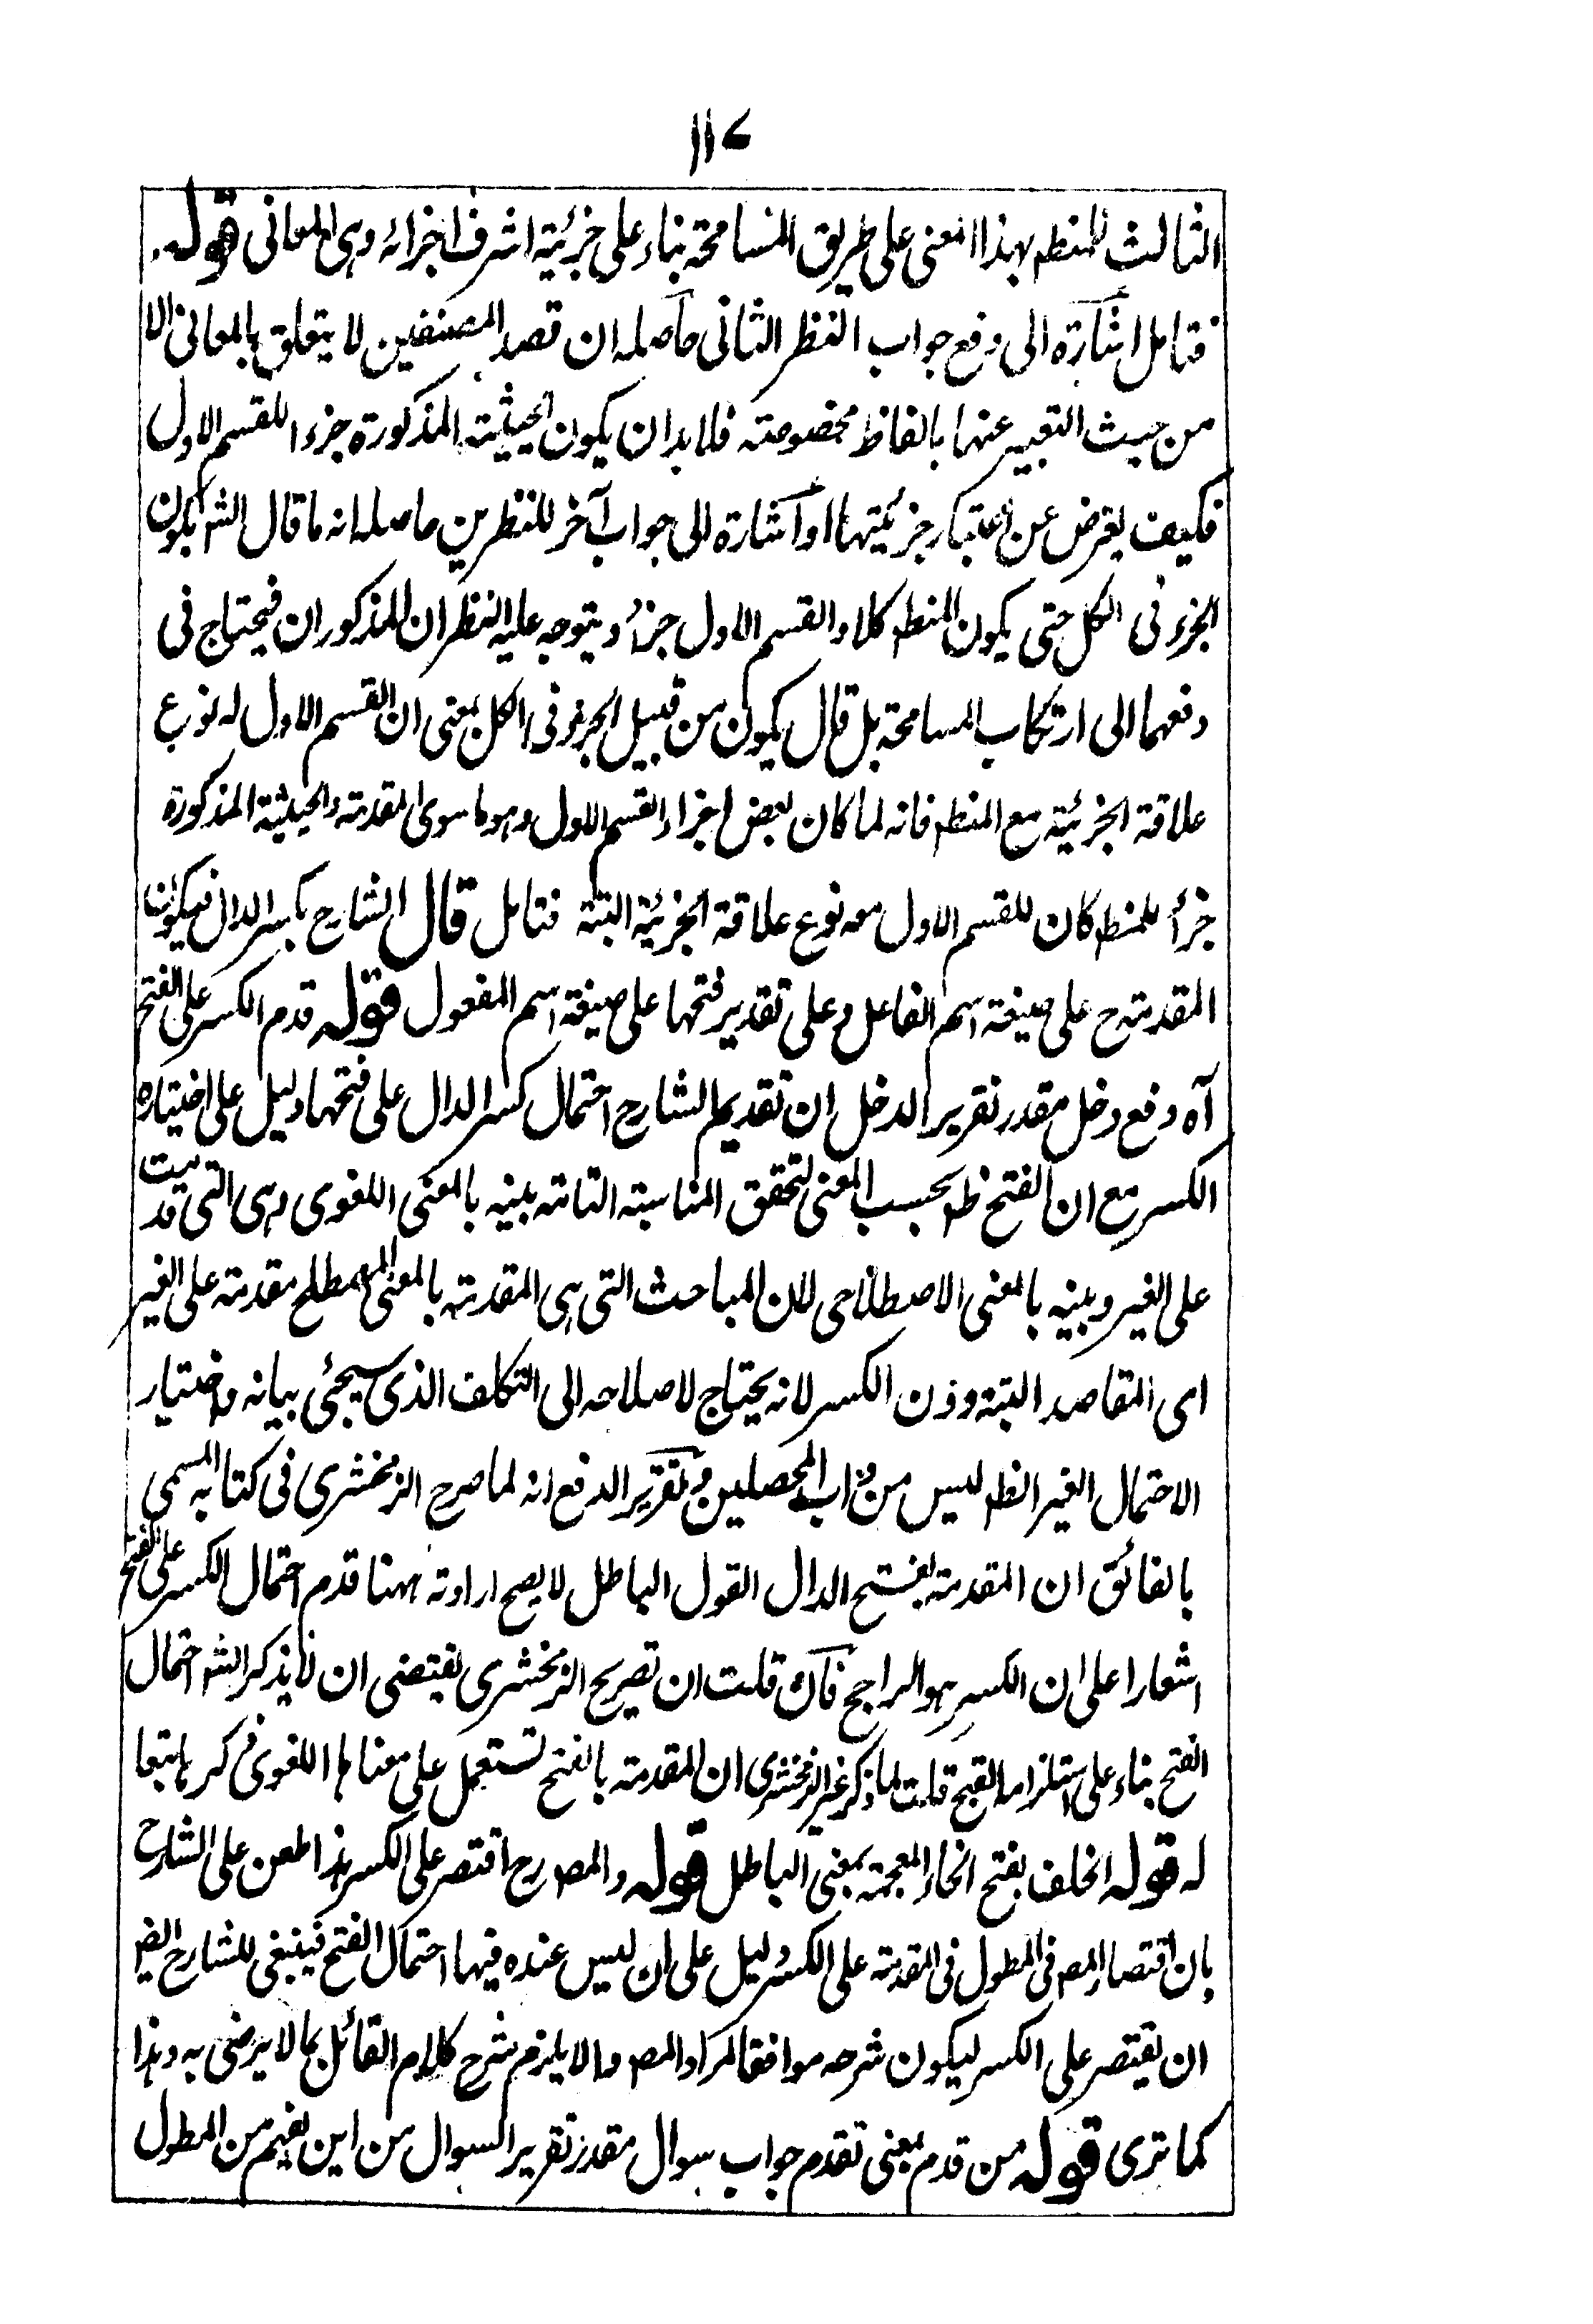 ١١٧
الثالث للمنطم بهذا المعنى على طريق المسامحة بناء على جزئية اشرف اجزائه وهى المعانى قوله
فتامل اشارة الى دفع جواب النظر الثانى حاصله ان قصد المصنفين لا يتعلق بالمعانى الا
من حيث التعبير عنها بالفاظ مخصوصة فلا بد ان يكون الحيثية المذكورة جزء اللقسم الاول
فكيف يعرض عن اعتبار جزئيتها او اشارة الى جواب آخر للنظرين حاصله انه ما قال الشر بكون
الجزء فى الكل حتى يكون المنطم كلا والقسم الاول جزأ ويتوجه عليه النظران المذكوران فيحتاج فى
دفعهما الى ارتكاب المسامحة بل قال يكون من قبيل الجزء فى الكل بمعنى ان القسم الاول له نوع
علاقة الجزئية مع المنطم فانه لما كان بعض اجزاء القسم الاول وهو ما سوى المقدمة والحيثية المذكورة
جزأ للمنطم كان للقسم الاول معه نوع علاقة الجزئية البتة فتامل قال الشارح بكسر الدال فيكون
المقدمة ح على صيغة اسم الفاعل وعلى تقدير فتحها على صيغة اسم المفعول قوله قدم الكسر على الفتح
آه دفع دخل مقدر تقرير الدخل ان تقديم الشارح احتمال كسر الدال على فتحها دليل على اختياره
الكسر مع ان الفتح ظم بحسب المعنى لتحقق المناسبة التامة بينه بالمعنى اللغوى وهى التى قدمت
على الغير وبينه بالمعنى الاصطلاحى لان المباحث التى هى المقدمة بالمعنى المصطلح مقدمة على الغير
اى المقاصد البتة دون الكسر لانه يحتاج لاصلاحه الى التكلف الذى سيجئى بيانه واختيار
الاحتمال الغير الظم ليس من داب المحصلين وتقرير الدفع انه لما صرح الزمخشرى فى كتابه المسمى
بالفائق ان المقدمة بفتح الدال القول الباطل لا يصح ارادته ههنا قدم احتمال الكسر على الفتح
اشعارا على ان الكسر هو الراجح فان قلت ان تصريح الزمخشرى يقتضى ان لا يذكر الشر احتمال
الفتح بناء على استلزامه القبح قلت لما ذكر غير الزمخشرى ان المقدمة بالفتح تستعمل على معناها اللغوى ذكرها تبعا
له قوله الخلف بفتح الخاء المعجمة بمعنى الباطل قوله والمصـ رح اقتصر على الكسر هذا طعن على الشارح
بان اقتصار المصـ فى المطول فى المقدمة على الكسر دليل على ان ليس عنده فيها احتمال الفتح فينبغى للشارح ايضا
ان يقتصر على الكسر ليكون شرحه موافقا لمراد المصـ والا يلزم شرح كلام القائل بما لا يرضى به وهذا
كما ترى قوله من قدم بمعنى تقدم جواب سوال مقدر تقرير السوال من اين يفهم من المطول